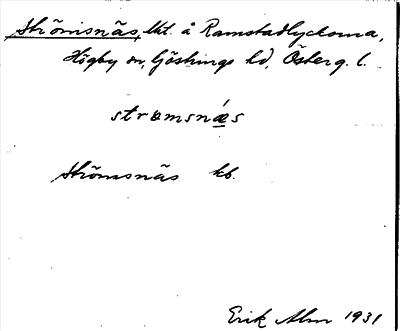 Strömsnäs, lht. å Ramstadlyckorna,
Högby sn, Göstrings hd, Österg. l.
strømsnæ´s
Strömsnäs kb.
Erik Alm 1931